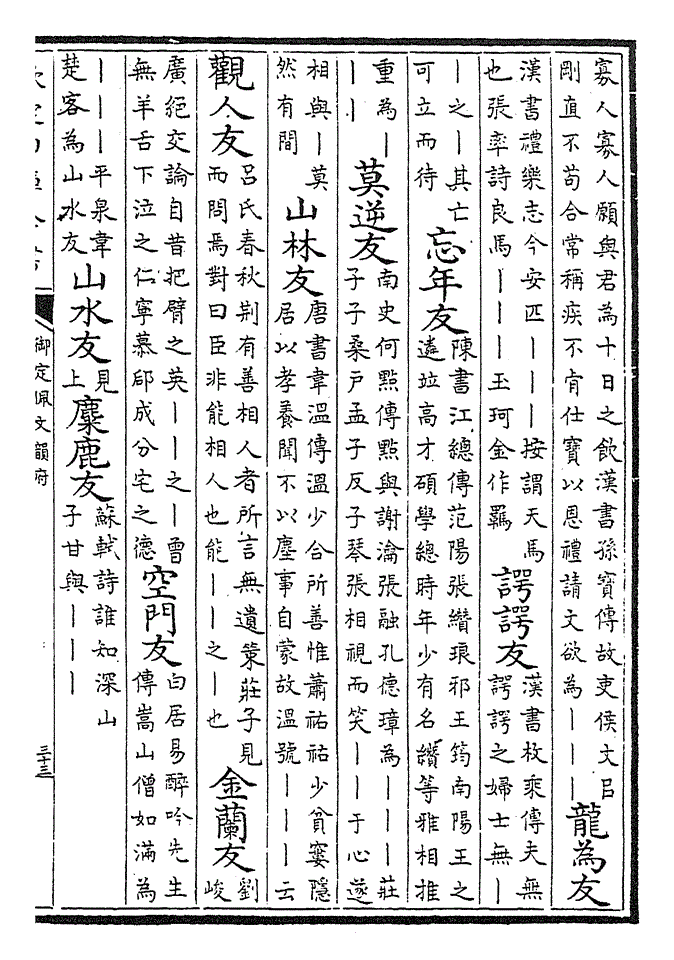 寡人寡人願與君為十日之飲漢書孫寶傳故吏侯文以
剛直不苟合常稱疾不肯仕寶以恩禮請文欲為｜｜｜
龍為友
漢書禮樂志今安匹｜｜｜按謂天馬
也張率詩良馬｜｜｜玉珂金作羈
諤諤友
漢書枚乘傳夫無
諤諤之婦士無｜
｜之｜其亡
可立而待
忘年友
陳書江總傳范陽張纘琅邪王筠南陽王之
遴竝高才碩學總時年少有名纘等雅相推
重為｜
｜｜
莫逆友
南史何點傳點與謝瀹張融孔德璋為｜｜｜莊
子子桑戶孟子反子琴張相視而笑｜｜于心遂
相與｜莫
然有間
山林友
唐書韋溫傳溫少合所善惟蕭祐祐少貧窶隱
居以孝養聞不以塵事自蒙故溫號｜｜｜云
觀人友
呂氏春秋荆有善相人者所言無遺策莊子見
而問焉對曰臣非能相人也能｜｜之｜也
金蘭友
劉
峻
廣絶交論自昔把臂之英｜｜之｜曾
無羊舌下泣之仁寧慕郈成分宅之德
空門友
白居易醉吟先生
傳嵩山僧如滿為
｜｜｜平泉韋
楚客為山水友
山水友
見
上
麋鹿友
蘇軾詩誰知深山
子甘與｜｜｜
御定佩文韻府
三十三